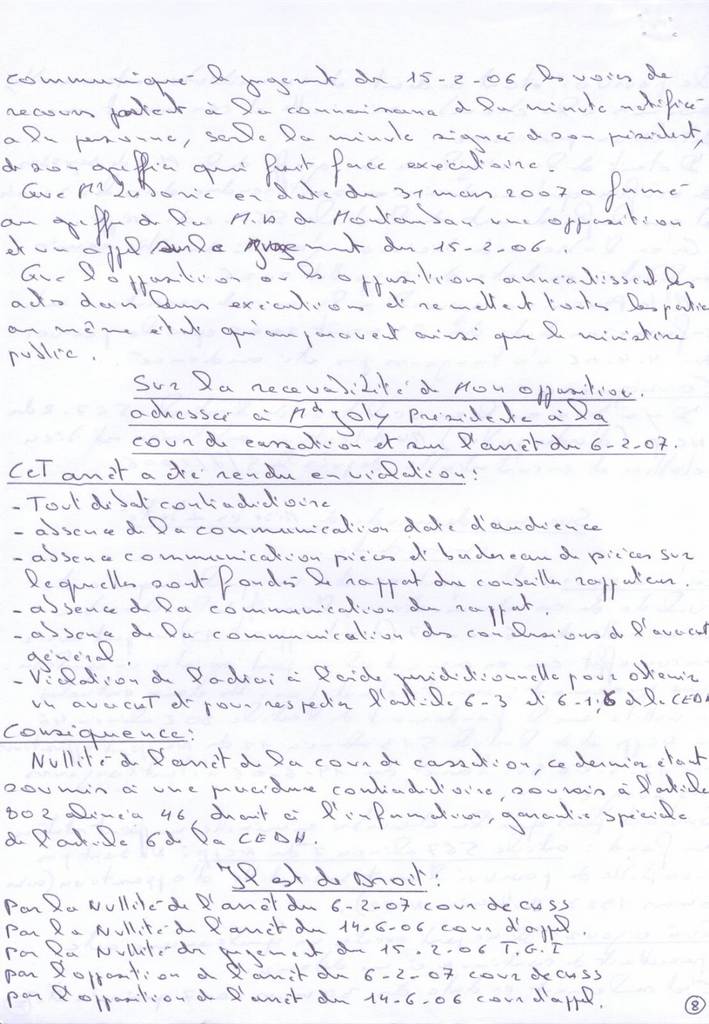 communiqué le jugement du 15-2-06, les voies de
recours partent à la connaissance d'la minute notifiée
a la personne, seule la minute signée de son président,
de son greffier qui fait force exécutoire.
Que Mr en date du 31 mars 2007 a formé
au greff de la M.A de Montauban une opposition
et un appel sur le jugement du 15-2-06.
Que l'opposition ou les oppositions anéantissent les
acts dans leur exécutions et remettent toutes les partie
au même état qu'auparavent ainsi que le ministère
public.
Sur la recevabilité de Mon opposition.
adressée à Md Joly Présidente à la
cour de cassation et sur l'arrêt du 6-2-07.
Cet arrêt a été rendu en violation:
- Tout débat contradictoire
- absence de la communication date d'audience
- absence communication pièces et borderean de pièces sur
lequelles sont fondés le rapport du conseiller rapporteur.
- absence de la communication du rapport.
- absence de la communication des conclusions de l'avocat
général
- Violation de à l'aide juriditionnelle pour obtenir
un avocat et pour respecter l'article 6-3 et 6-1, 6 de la CEDH
Conséquence:
Nullité de l'arrêt de la cour de cassation, ce dernier étant
soumis à une procédure contradictoire, soumis à l'article
802 alinéa 46, droit à l'information, garantie spéciale
de l'article 6 de la CEDH.
Il est de Droit:
Par la Nullité de l'arrêt du 6-2-07 cour de cass
Par la Nullité de l'arrêt du 14-6-06 cour d'appl.
Par la Nullité du jugement du 15-2-06 T.G.I
par l'oppostion de l'arrêt du 6-2-07 cour de cass
par l'opposition de l'arrêt du 14-6-06 cour d'appl.
8